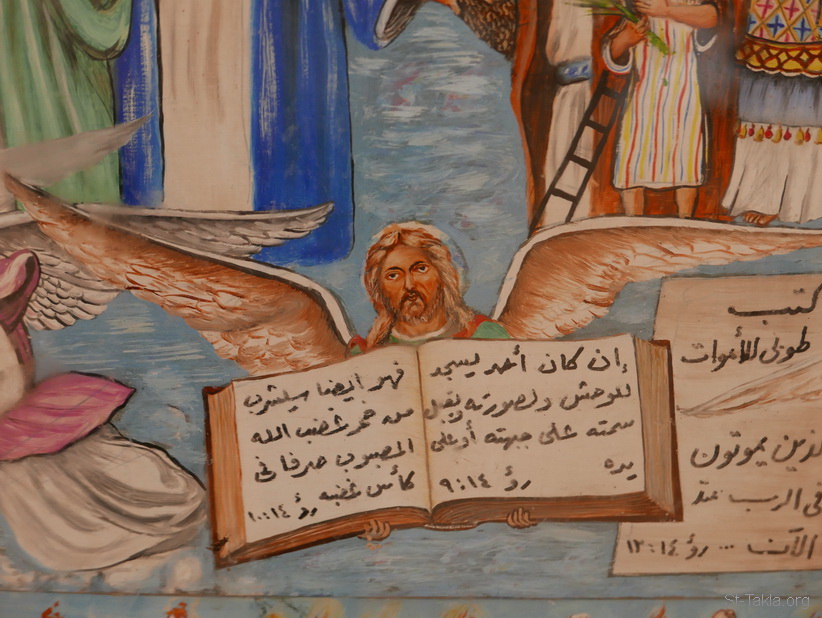 إن كان أحد يسجد
للوحش ولصورته ويقبل
سمته على جبهته أو على
يده
رؤ ١٤:٩
فهو أيضا سيشرب
من خمر غضب الله
المصبوب صرفا في
كأس غضبه رؤ ١٤:١٠
كتب
طوبى للأموات
لذين يموتون
في الرب منذ
الآن ... رؤ ١٤:١٣
St-Takla.org